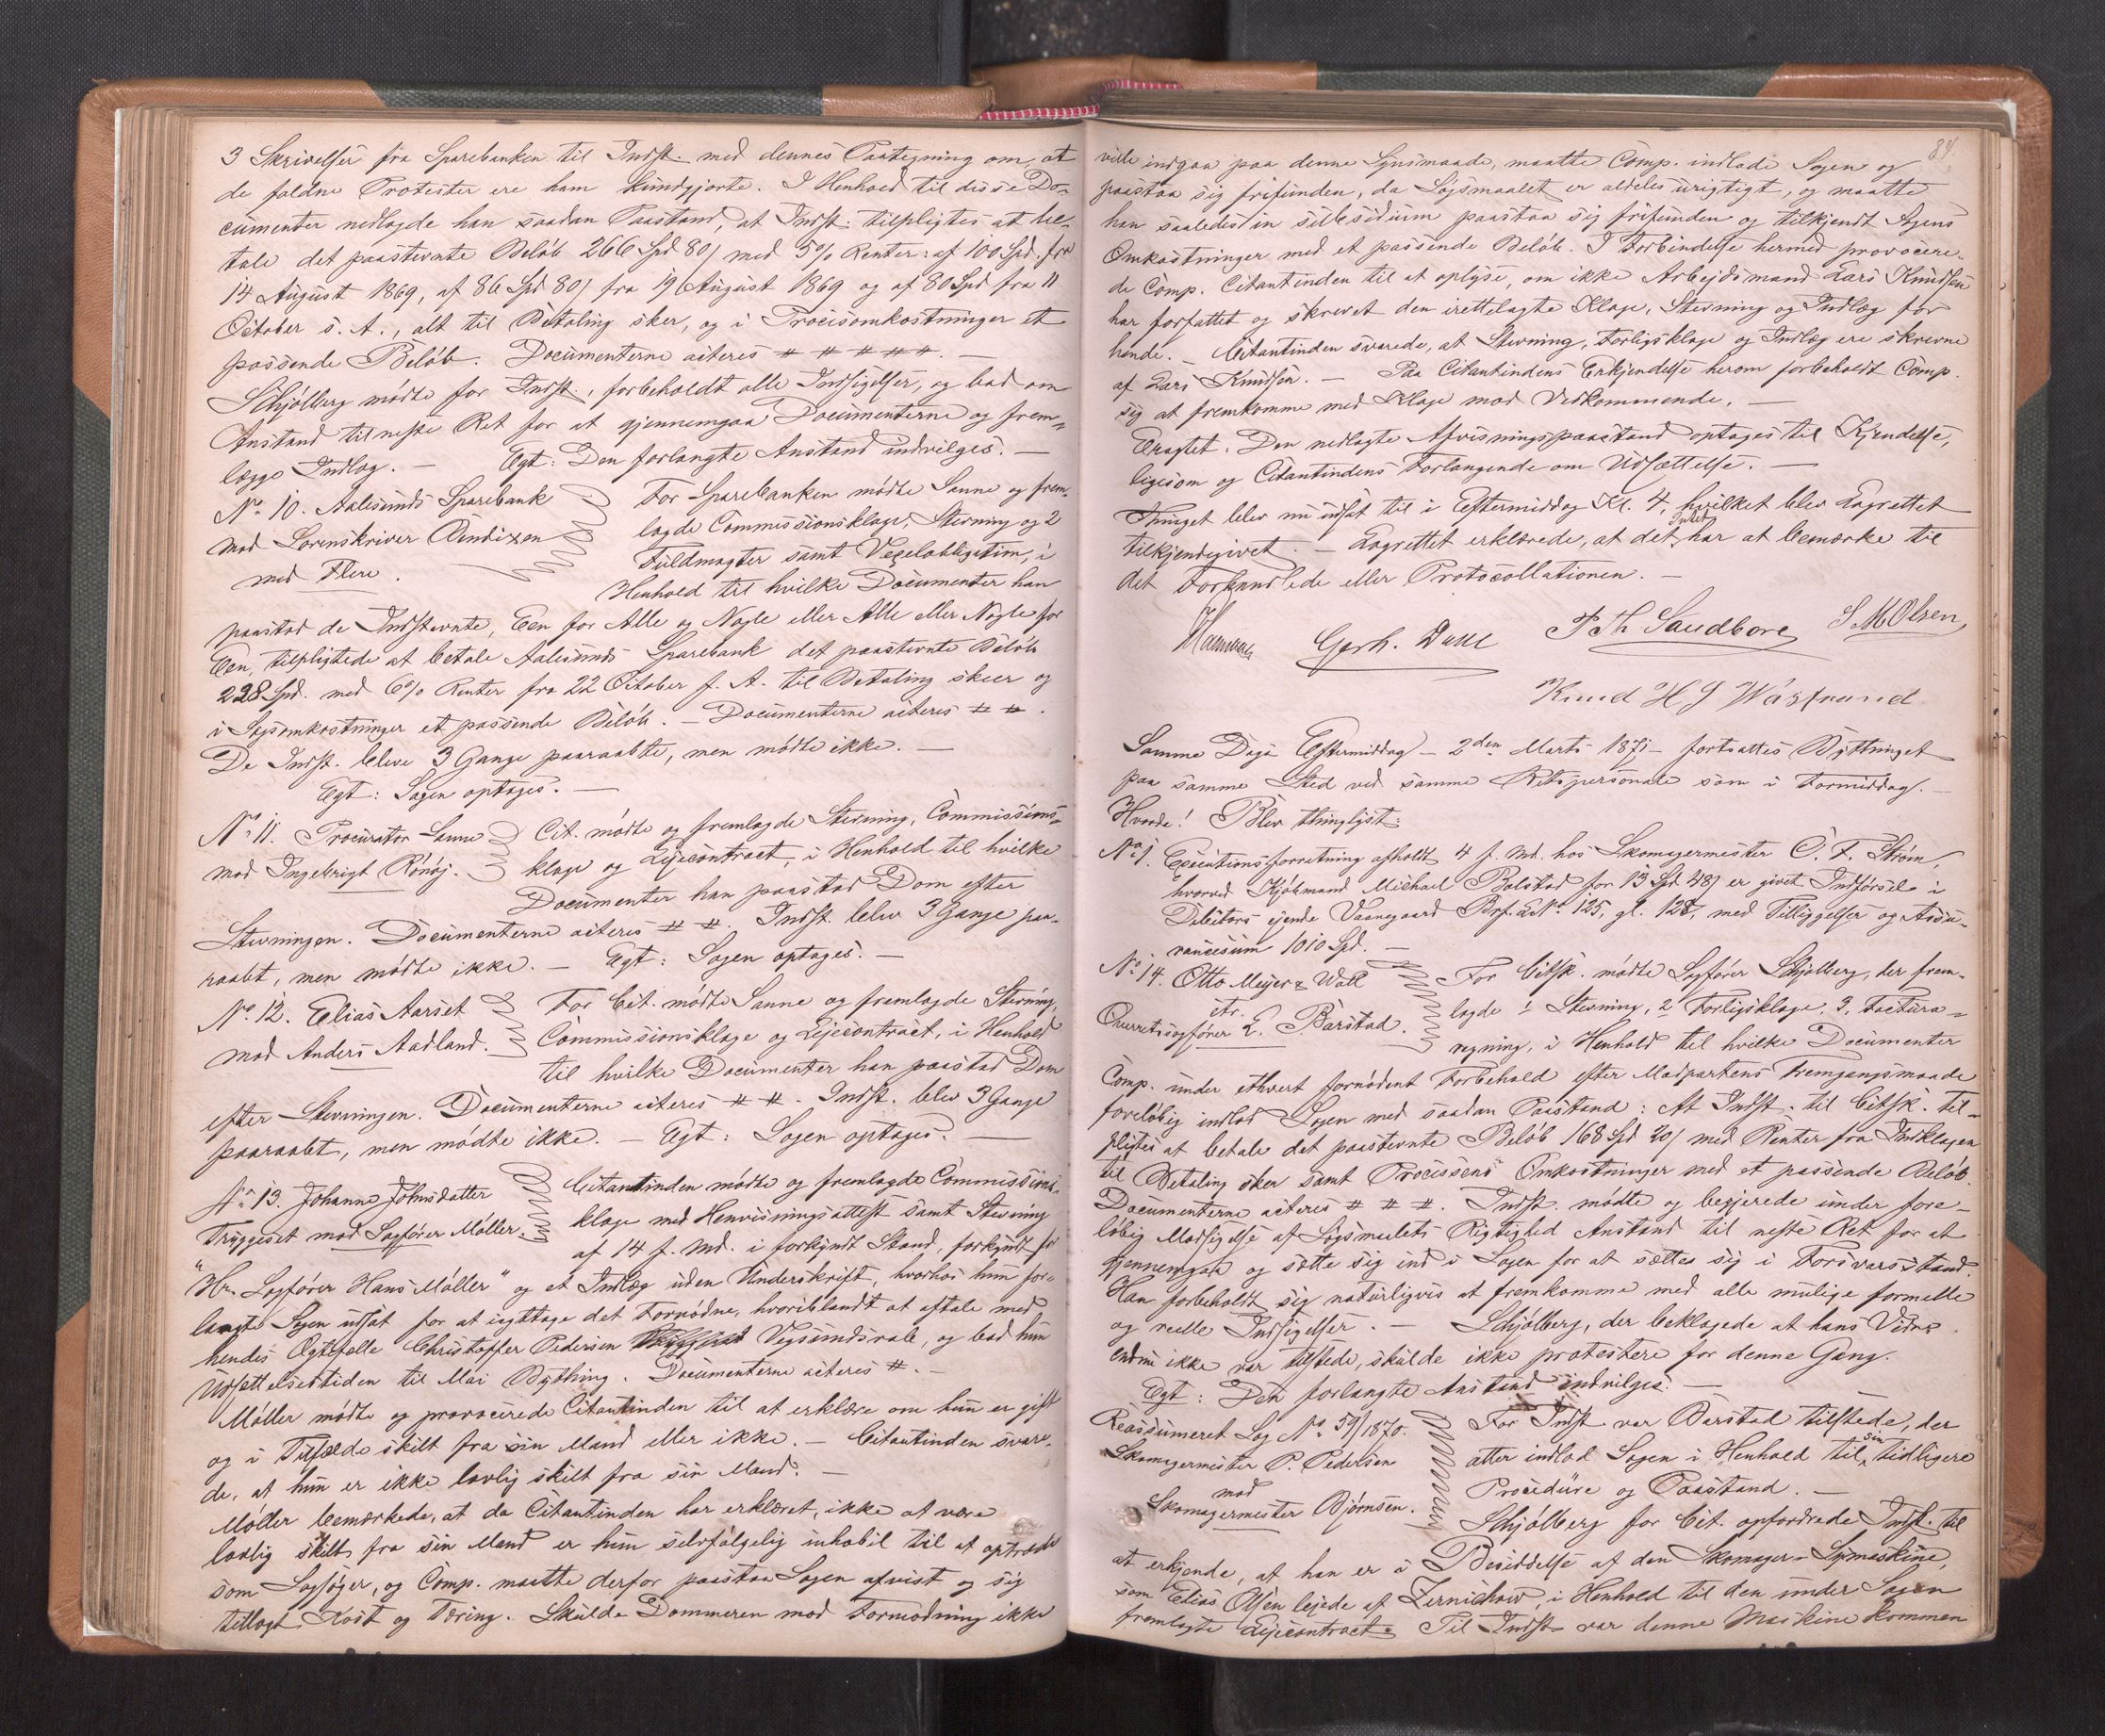 3 Skrivelser fra Sparebanken til Indst. med dennes Paategning om, at
de faldne Protester ere ham kundgjorte. I Henhold til disse Do-
cumenter nedlagde han saadan Paastand, at Indst. tilpligtes at be-
tale det paastevnte Beløb 266 Spd 80 s med 5% Renter: af 100 Spd. fra
14 August 1869, af 86 Spd 80 s fra 19 August 1869 og af 80 Spd fra 11
October s. A., alt til Betaling sker, og i Procesomkostninger et
passende Beløb. Documenterne acteres # # # # #. —
Schjølberg mødte for Indst., forbeholdt alle Indsigelser, og bad om
Anstand til neste Ret for at gjennemgaa Documenterne og frem-
lægge Indlæg. — Egt: Den forlangte Anstand indvilges. —
No 10. Aalesunds Sparebank
mod Sorenskriver Bendixen
med Flere.
For Sparebanken mødte Sanne og frem-
lagde Commissionsklage, Stevning og 2
Fuldmagter samt Vexelobligation, i
Henhold til hvilke Documenter han
paastod de Indstevnte, Een for Alle og Nogle eller Alle eller Nogle for
Een, tilpligtede at betale Aalesunds Sparebank det paastevnte Beløb
228 Spd. med 6% Renter fra 22 October f. A. til Betaling skeer og
i Sagsomkostninger et passende Beløb. — Documenterne acteres # #.
De Indst. bleve 3 Gange paaraabte, men mødte ikke. —
Egt: Sagen optages. —
No 11. Procurator Sanne
mod Ingebrigt Rønøj.
Cit. mødte og fremlagde Stevning, Commissions-
klage og Lejecontract, i Henhold til hvilke
Documenter han paastod Dom efter
Stevningen. Documenterne acteres # #. Indst. blev 3 Gange paa-
raabt, men mødte ikke. — Egt: Sagen optages. —
No 12. Elias Aarset
mod Anders Aadland.
For Cit. mødte Sanne og fremlagde Stevning,
Commissionsklage og Lejecontract, i Henhold
til hvilke Documenter han paastod Dom
efter Stevningen. Documenterne acteres # #. Indst. blev 3 Gange
paaraabt, men mødte ikke. — Egt: Sagen optages. —
No 13. Johanne Johnsdatter
Tryggeset mod Sagfører Møller.
Citantinden mødte og fremlagde Commissions-
klage med Henvisningsattest samt Stevning
af 14 f. Md. i forkyndt Stand, forkyndt for
"Hr. Sagfører Hans Møller" og et Indlæg uden Underskrift, hvorhos hun for-
langte Sagen udsat for at iagttage det Fornødne, hvoriblandt at aftale med
hendes Ægtefelle Christoffer Pedersen Vegsundsvale, og bad hun
Udsættelsestiden til Mai Bything. Documenterne acteres #. —
Møller mødte og provocerede Citantinden til at erklære om hun er gift
og i Tilfælde skilt fra sin Mand eller ikke. — Citantinden svare-
de, at hun er ikke lovlig skilt fra sin Mand. —
Møller bemærkede, at da Citantinden har erklæret, ikke at være
lovlig skilt fra sin Mand er hun selvfølgelig inhabil til at optræde
som Sagsøger, og Comp. maatte derfor paastaa Sagen afvist og sig
tillagt Kost og Tæring. Skulde Dommeren mod Formodning ikke
84.
ville indgaa paa denne Synsmaade, maatte Comp. indlade Sagen og
paastaa sig frifunden, da Søgsmaalet er aldeles urigtigt, og maatte
han saaledes in subsidium paastaa sig frifunden og tilkjendt Sagens
Omkostninger med et passende Beløb. I Forbindelse hermed provocere-
de Comp. Citantinden til at oplyse, om ikke Arbejdsmand Lars Knudsen
har forfattet og skrevet den irettelagte Klage, Stevning og Indlæg for
hende. — Citantinden svarede, at Stevning, Forligsklage og Indlæg ere skrevne
af Lars Knudsen. — Paa Citantindens Erkjendelse herom forbeholdt Comp.
sig at fremkomme med Klage mod Vedkommende. —
Eragtet. Den nedlagte Afvisningspaastand optages til Kjendelse,
ligesom og Citantindens Forlangende om Udsættelse. —
Thinget blev nu udsat til i Eftermiddag Kl. 4, hvilket blev Lagrettet
tilkjendegivet. — Lagrettet erklærede, at det Intet har at bemærke til
det Forhandlede eller Protocollationen. —
Gerh. Dahl P Th Sandborg S M Olsen
Knud H J Warfrund
Samme Dags Eftermiddag — 2den Marts 1871 — fortsattes Bythinget
paa samme Sted ved samme Retspersonale som i Formiddag. —
Hvorda! Blev thinglyst:
No 1. Executionsforretning afholdt 4 f. Md. hos Skomagermester O. F. Strøm,
hvorved Kjøbmand Michael Bolstad for 13 Spd 48 s er givet Indførsel i
Debitors ejende Vaanegaard Brf. L No 125, gl. 128, med Tilliggelser og Assu-
rancesum 1010 Spd. —
No 14. Otto Meyer & Wall
ctr.
Overretssagfører E. Barstad.
For Citsk. mødte Sagfører Schjølberg, der frem-
lagde 1 Stevning, 2 Forligsklage, 3, Factura-
regning, i Henhold til hvilke Documenter
Comp. under ethvert fornødent Forbehold efter Modpartens Fremgangsmaade
foreløbig indlod Sagen med saadan Paastand: At Indst. til Citsk. til-
pligtes at betale det paastevnte Beløb 168 Spd 20 s med Renter fra Indklagen
til Betaling sker samt Processens Omkostninger med et passende Beløb.
Documenterne acteres # # #. Indst. mødte og begjerede under fore-
løbig Modsigelse af Søgsmaalets Rigtighed Anstand til neste Ret for at
gjennemgaa og sætte sig ind i Sagen for at sættes sig i Forsvarsstand.
Han forbeholdt sig naturligvis at fremkomme med alle mulige formelle
og reelle Indsigelser. — Schjølberg, der beklagede at hans Vidne
endnu ikke var tilstede, skulde ikke protestere for denne Gang.
Egt: Den forlangte Anstand indvilges. —
Reassumeret Sag No 59/1870.
Skomagermester P. Pedersen
mod
Skomagermester Bjørnsen.
For Indst. var Barstad tilstede, der
atter indlod Sagen i Henhold til sin tidligere
Procedure og Paastand. —
Schjølberg for Cit. opfordrede Indst. til
at erkjende, at han er i Besiddelse af den Skomager-Symaskine,
som Elias Olsen lejede af Zernichow, i Henhold til den under Sagen
fremlagte Lejecontract. Til Indst. var denne Maskine kommen